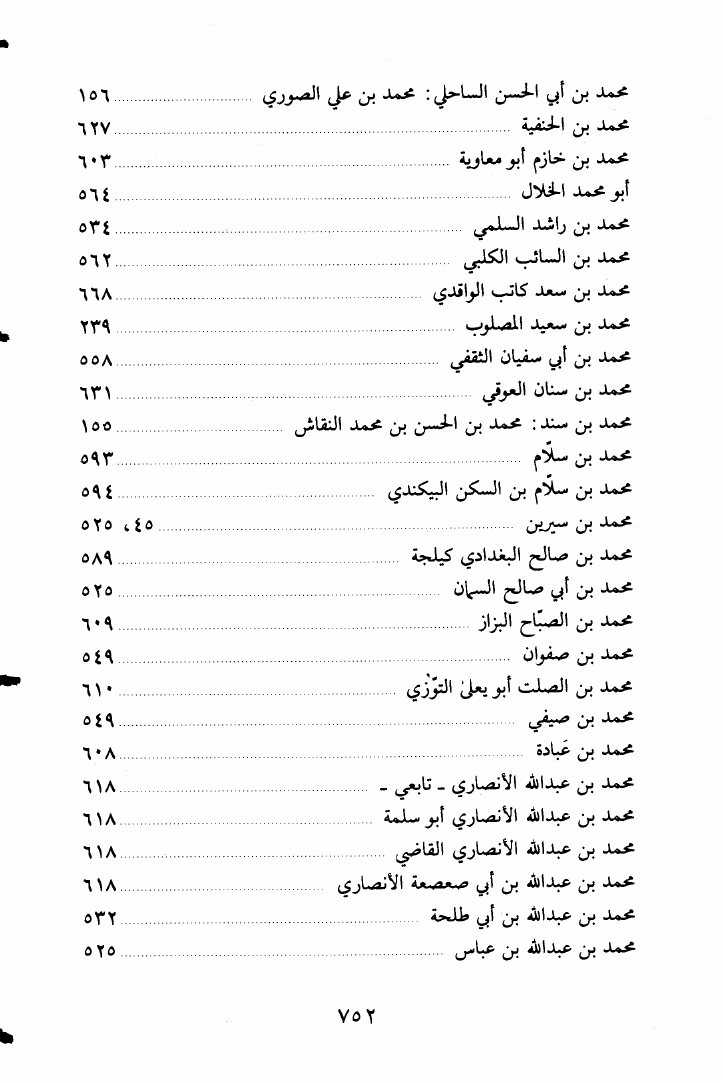 محمد بن أبي الحسن الساحلي: محمد بن علي الصوري ........ ١٥٦
محمد بن الحنفية ........ ٦٢٧
محمد بن خازم أبو معاوية ........ ٦٠٣
أبو محمد الخلال ........ ٥٦٤
محمد بن راشد السلمي ........ ٥٣٤
محمد بن السائب الكلبي ........ ٥٦٢
محمد بن سعد كاتب الواقدي ........ ٦٦٨
محمد بن سعيد المصلوب ........ ٢٣٩
محمد بن أبي سفيان الثقفي ........ ٥٥٨
محمد بن سنان العوقي ........ ٦٣١
محمد بن سند: محمد بن الحسن بن محمد النقاش ........ ١٥٥
محمد بن سلّام ........ ٥٩٣
محمد بن سلّام بن السكن البيكندي ........ ٥٩٤
محمد بن سيرين ........ ٤٥، ٥٢٥
محمد بن صالح البغدادي كيلجة ........ ٥٨٩
محمد بن أبي صالح السمان ........ ٥٢٥
محمد بن الصبّاح البزاز ........ ٦٠٩
محمد بن صفوان ........ ٥٤٩
محمد بن الصلت أبو يعلىٰ التوّزي ........ ٦١٠
محمد بن صيفي ........ ٥٤٩
محمد بن عَبادة ........ ٦٠٨
محمد بن عبدالله الأنصاري ـ تابعي ـ ........ ٦١٨
محمد بن عبدالله الأنصاري أبو سلمة ........ ٦١٨
محمد بن عبدالله الأنصاري القاضي ........ ٦١٨
محمد بن عبدالله بن أبي صعصعة الأنصاري ........ ٦١٨
محمد بن عبدالله بن أبي طلحة ........ ٥٣٢
محمد بن عبدالله بن عباس ........ ٥٢٥
٧٥٢